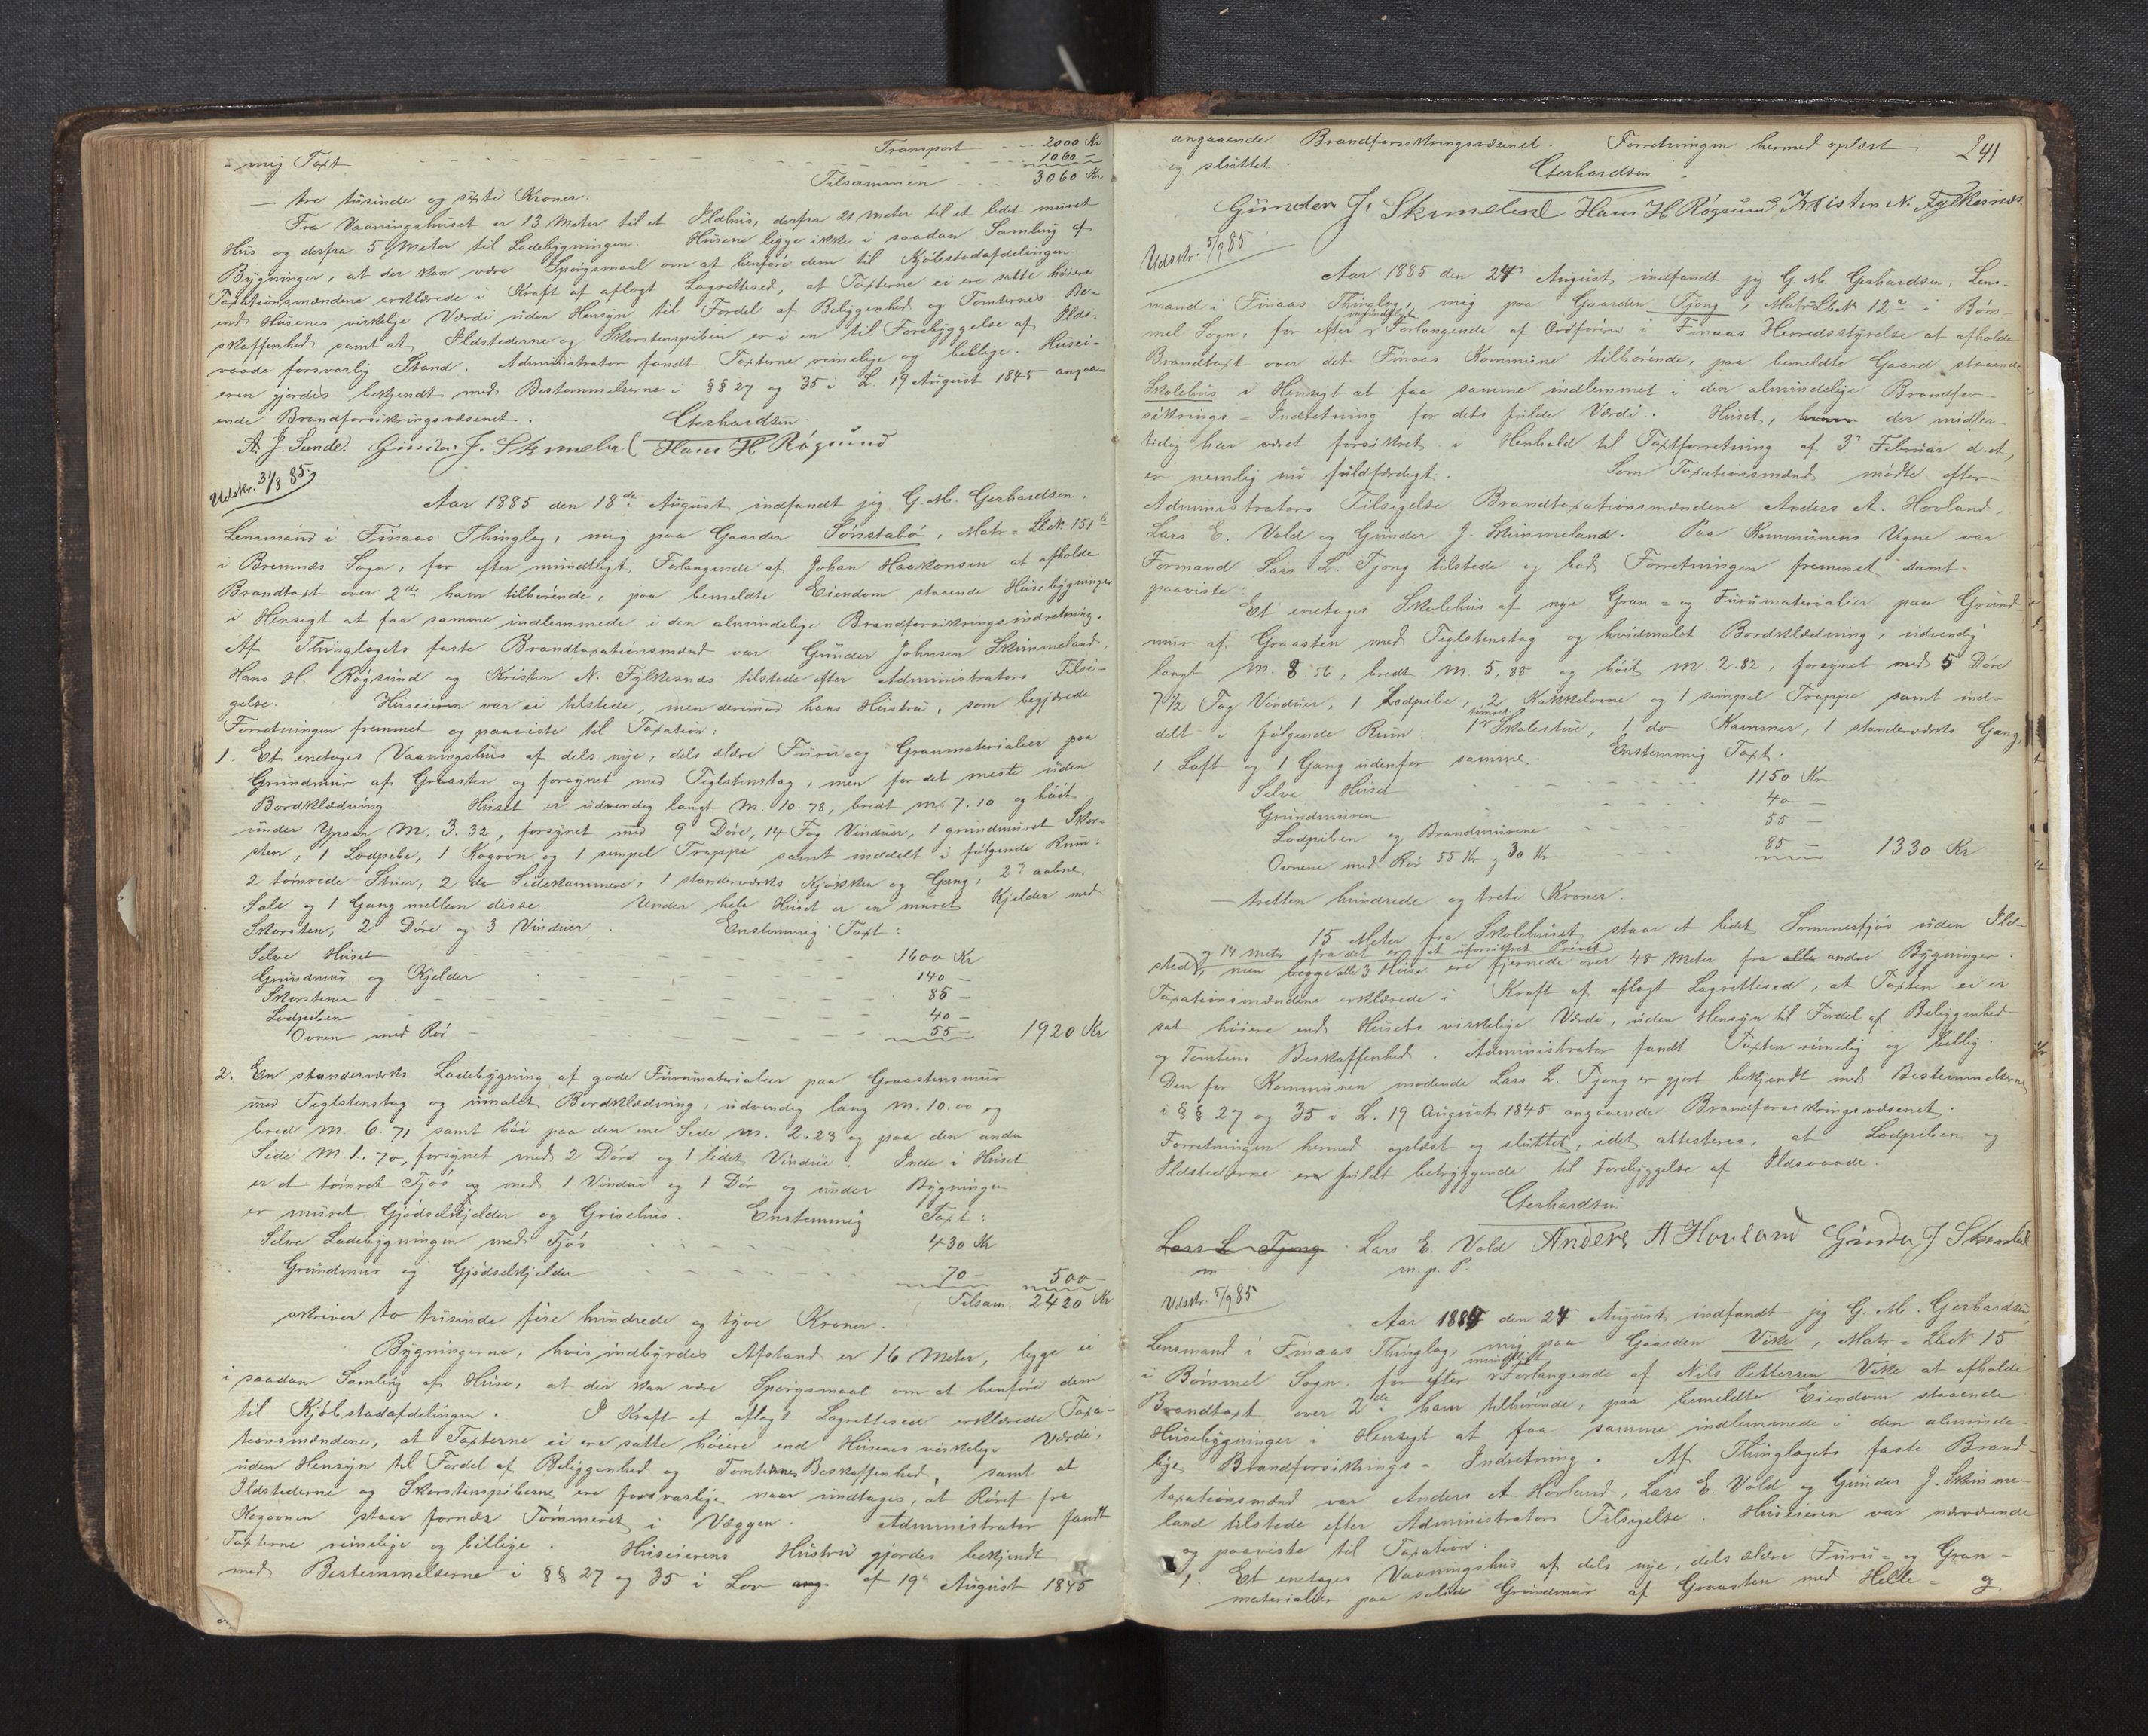 Transport - - 2000 Kr
= mig Taxt - - - 1060 -
Tilsammen - - 3060 Kr
— tre tusinde og sexti Kroner.
Fra Vaaningshuset er 13 Meter til et Ildhus, derfra 21 Meter til et lidet muret
Hus og derfra 5 Meter til Ladebygningen. Husene ligge ikke i saadan Samling af
Bygninger, at der kan være Spørgsmaal om at henføre dem til Kjøbstadafdelingen.
Taxationsmændene erklærede i Kraft af aflagt Lagrettesed, at Taxterne ei ere satte høiere
end Husenes virkelige Værdi uden Hensyn til Fordel af Beliggenhed og Tomternes Be-
skaffenhed samt at Ildstederne og Skorstenspiben er i en til Forebyggelse af Ilds-
vaade forsvarlig Stand. Administrator fandt Taxterne rimelige og billige. Husei-
eren gjordes bekjendt med Bestemmelserne i §§ 27 og 35 i L. 19 August 1845 angaa-
ende Brandforsikringsvæsenet.
Gerhardsen.
A. J. Sunde. Gunder J. Skimmeland Hans H Røgsund
Udskr. 31/8 85.
Aar 1885 den 18de August indfandt jeg G. M. Gerhardsen.
Lensmand i Finaas Thinglag, mig paa Gaarden Sønstabø, Matr = Lbek 151b
i Bremnæs Sogn, for efter mundtligt Forlangende af Johan Haakonsen at afholde
Brandtaxt over 2de ham tilhørende, paa bemeldte Eiendom staaende Husebygninger
i Hensigt at faa samme indlemmede i den almindelige Brandforsikringsindretning.
Af Thinglagets faste Brandtaxationsmænd var Gunder Johnsen Skimmeland,
Hans H. Røgsund og Kristen N. Fylkesnæs tilstede efter Administrators Tilsi-
gelse. Huseieren var ei tilstede, men derimod hans Hustru, som begjærede
Forretningen fremmet og paaviste til Taxation:
1. Et enetages Vaaningshus af dels nye, dels ældre Furu- og Granmaterialier paa
Grundmur af Graasten og forsynet med Teglstenstag, men for det meste uden
Bordklædning. Huset er udvendig langt M. 10.78, bredt M. 7.10 og høit
under Ypsen M. 3.32, forsynet med 9 Døre, 14 Fag Vinduer, 1 grundmuret Skor-
sten, 1 Lodpibe, 1 Kogovn og 1 simpel Trappe samt inddelt i følgende Rum:
2 tømrede Stuer, 2 do Sidekammere, 1 standerværks Kjøkken og Gang, 2de aabne
Sale og 1 Gang mellem disse. Under hele Huset er en muret Kjelder med
Skorsten, 2 Døre og 3 Vinduer. Enstemmig Taxt:
Selve Huset - - - 1600 Kr
Grundmur og Kjelder - - - 140 -
Skorstenen - - - 85 -
Lodpiben - - - 40 -
Ovnen med Rør - - - 55 - 1920 Kr
2. En standerværks Ladebygning af gode Furumaterialier paa Graastensmur
med Teglstenstag og umalet Bordklædning, udvendig lang M. 10.00 og
bred M. 6.71 samt høi paa den ene Side M. 2.23 og paa den anden
Side M. 1.70, forsynet med 2 Døre og 1 lidet Vindue. Inde i Huset
er et tømret Fjøs og med 1 Vindue og 1 Dør og under Bygningen
er muret Gjødselkjelder og Grisehus. Enstemmig Taxt:
Selve Ladebygningen med Fjøs - - - 430 Kr
Grundmur og Gjødselkjelder - - - 70 - 500 -
Tilsam. 2420 Kr
skriver to tusinde fire hundrede og tyve Kroner.
Bygningerne, hvis indbyrdes Afstand er 16 Meter, ligge ei
i saadan Samling af Huse, at der kan være Spørgsmaal om at henføre dem
til Kjøbstadafdelingen. I Kraft af aflagt Lagrettesed erklærede Taxa-
tionsmændene, at Taxterne ei ere satte høiere end Husenes virkelige Værdi,
uden Hensyn til Fordel af Beliggenhed og Tomternes Beskaffenhed, samt at
Ildstederne og Skorstenspiberne ere forsvarlige naar undtages, at Røret fra
Kogovnen staar for nær Tømmeret i Væggen. Administrator fandt
Taxterne rimelige og billige. Huseierens Hustru gjordes bekjendt
med Bestemmelserne i §§ 27 og 35 i Lov ang. af 19de August 1845
241
angaaende Brandforsikringsvæsenet. Forretningen hermed oplæst
og sluttet.
Gerhardsen
Gunder J. Skimeland Hans H Røgsund Kristen N. Fylkesnæs.
Udskr. 5/9 85
Aar 1885 den 24de August indfandt jeg G. M. Gerhardsen, Lens-
mand i Finaas Thinglag, mig paa Gaarden Tjong, Matr. Lbek 12a i Bøm-
mel Sogn, for efter mundtligt Forlangende af Ordføreren i Finaas Herredsstyrelse at afholde
Brandtaxt over det Finaas Kommune tilhørende, paa bemeldte Gaard staaende
Skolehus i Hensigt at faa samme indlemmet i den almindelige Brandfor-
sikrings-Indretning for dets fulde Værdi. Huset, der midler-
tidig har været forsikret i Henhold til Taxtforretning af 3de Februar d. A.,
er nemlig nu fuldfærdigt. Som Taxationsmænd mødte efter
Administrators Tilsigelse Brandtaxationsmændene Anders A. Hovland,
Lars E. Vold og Gunder J. Skimmeland. Paa Kommunens Vegne var
Formand Lars L. Tjong tilstede og bad Forretningen fremmet samt
paaviste:
Et enetages Skolehus af nye Gran = og Furumaterialier paa Grund-
mur af Graasten med Teglstenstag og hvidmalet Bordklædning, udvendig
langt M. 8.56, bredt M. 5,88 og høit M. 2.82, forsynet med 5 Døre
7 1/2 Fag Vinduer, 1 Lodpibe, 2 Kakkelovne og 1 simpel Trappe samt ind-
delt i følgende Rum: 1 tømret Skolestue, 1 do Kammer, 1 standerværks Gang,
1 Loft og 1 Gang udenfor samme. Enstemmig Taxt:
Selve Huset - - - 1150 Kr
Grundmuren - - - 40 -
Lodpiben og Brandmurene - - - 55 -
Ovnene med Rør 55 Kr og 30 Kr - - - 85 - 1330 Kr
— tretten hundrede og treti Kroner.
15 Meter fra Skolehuset staar et lidet Sommerfjøs uden Ild-
sted, og 14 Meter fra det er et uforsikret Privet, men begge alle 3 Huse ere fjernede over 48 Meter fra alle andre Bygninger.
Taxationsmændene erklærede i Kraft af aflagt Lagrettesed, at Taxten ei er
sat høiere end Husets virkelige Værdi, uden Hensyn til Fordel af Beliggenhed
og Tomtens Beskaffenhed. Administrator fandt Taxten rimelig og billig.
Den for Kommunen mødende Lars L. Tjong er gjort bekjendt med Bestemmelserne
i §§ 27 og 35 i L. 19 August 1845 angaaende Brandforsikringsvæsenet.
Forretningen hermed oplæst og sluttet, idet attesteres, at Lodpiben og
Ildstederne er fuldt betryggende til Forebyggelse af Ildsvaade.
Gerhardsen
Lars L. Tjong Lars E. Vold Anders A Hovland Gunder J Skimeland
m. p. P.
Udskr. 5/9 85
Aar 1885 den 24 August, indfandt jeg G. M. Gerhardsen,
Lensmand i Finaas Thinglag, mig paa Gaarden Vike, Matr = Lbek 15
i Bømmel Sogn, for efter mundtligt Forlangende af Nils Pettersen Vike at afholde
Brandtaxt over 2de ham tilhørende, paa bemeldte Eiendom staaende
Husebygninger i Hensigt at faa samme indlemmede i den alminde-
lige Brandforsikrings = Indretning. Af Thinglagets faste Brand-
taxationsmænd var Anders A. Hovland, Lars E. Vold og Gunder J. Skimme-
land tilstede efter Administrators Tilsigelse. Huseieren var nærværende
og paaviste til Taxation:
1. Et enetages Vaaningshus af dels nye, dels ældre Furu = og Gran-
materialier paa solid Grundmur af Graasten med Helle = og